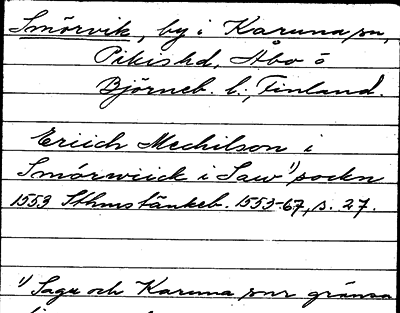 Smörvik, by i Karuna sn,
Pikishd, Åbo o
Björneb. l., Finland.
Eriich Mechilson i
Smörwiick i Saw¹⁾ sockn
1553 Sthmstänkeb. 1553-67, s. 27.
¹⁾ Sagu och Karuna snr gränsa